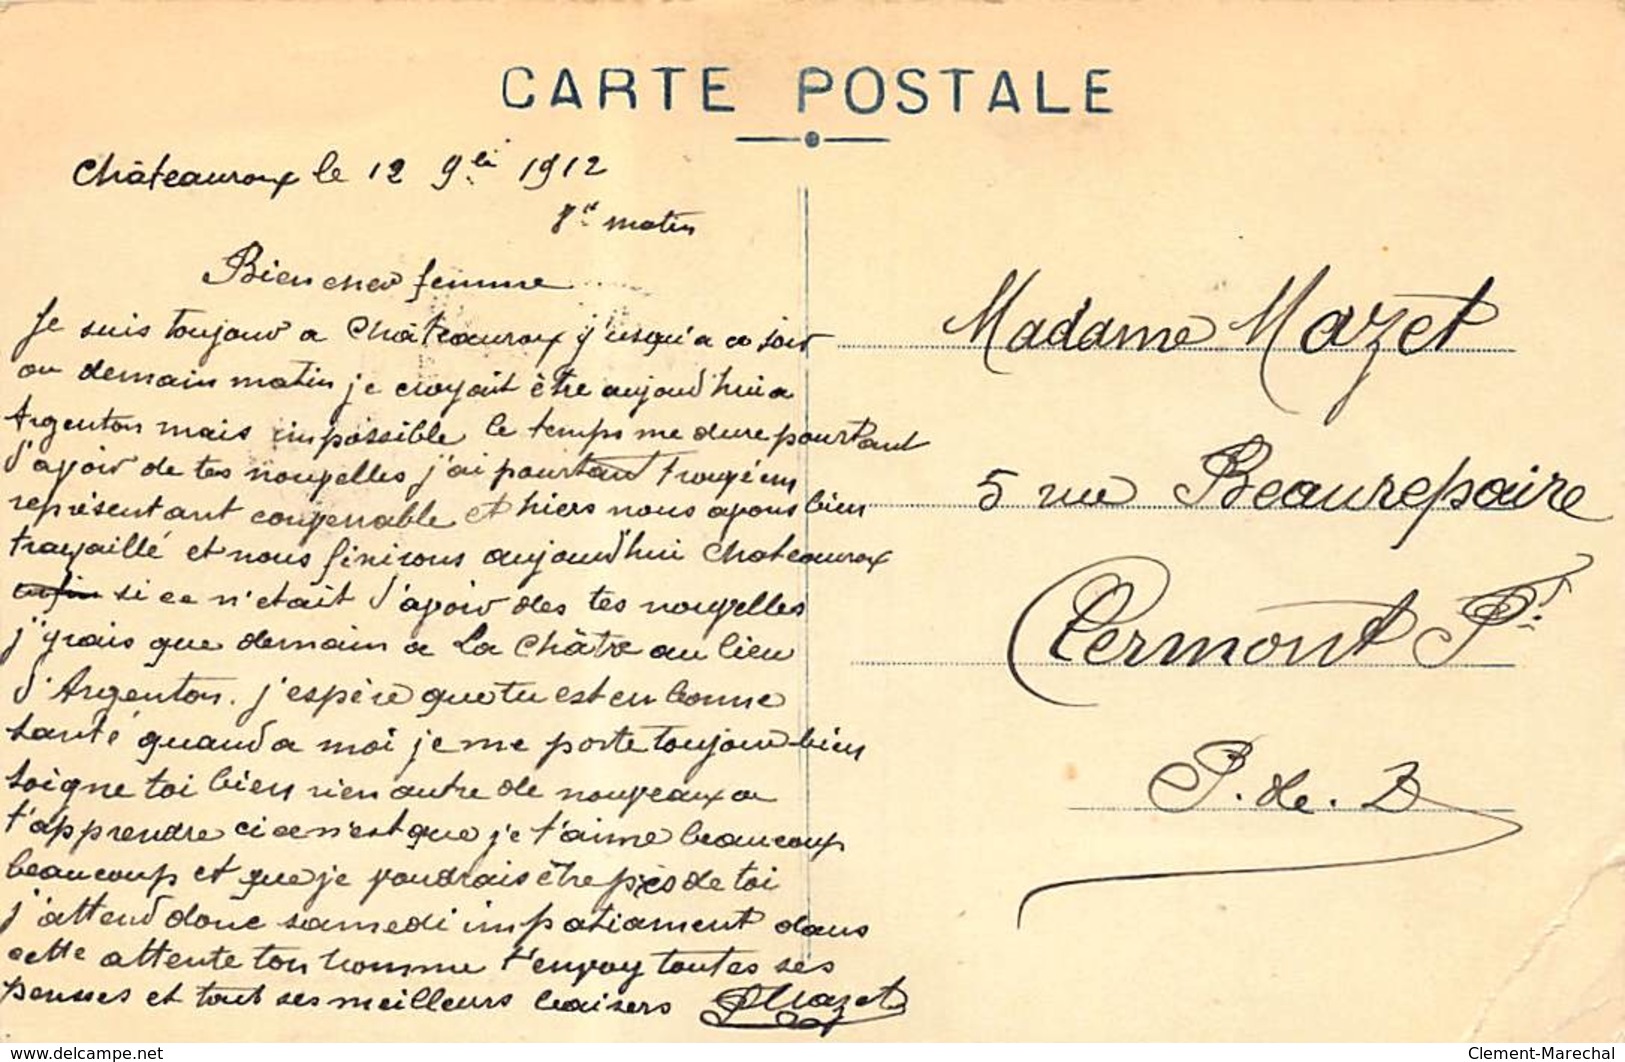 CARTE POSTALE
Châteauroux le 12 9bre 1912
8h matin
Bien cher femme
Je suis toujour a Châteauroux j'usqu'a ce soir
ou demain matin je croyait être aujourd'hui a
Argenton mais impossible le temps me dure pourtant
d'avoir de tes nouvelles j'ai pourtant trouvé un
représentant convenable et hiers nous avons bien
travaillé et nous finirons aujourd'hui Chateauroux
enfin si ce n'etait d'avoir des tes nouvelles
j'yrais que demain a La Châtre au lieu
d'Argenton. j'espère que tu est en bonne
santé quand a moi je me porte toujour bien
soigne toi bien rien autre de nouveaux a
t'apprendre ci ce n'est que je t'aime beaucoup
beaucoup et que je voudrais être près de toi
j'attend donc samedi impatiament dans
cette attente ton homme t'envoy toutes ses
pensses et tout ses meilleurs baisers Mazet
Madame Mazet
5 rue Beaurepaire
Clermont Fd
P. de. D
www.delcampe.net
Clement-Marechal